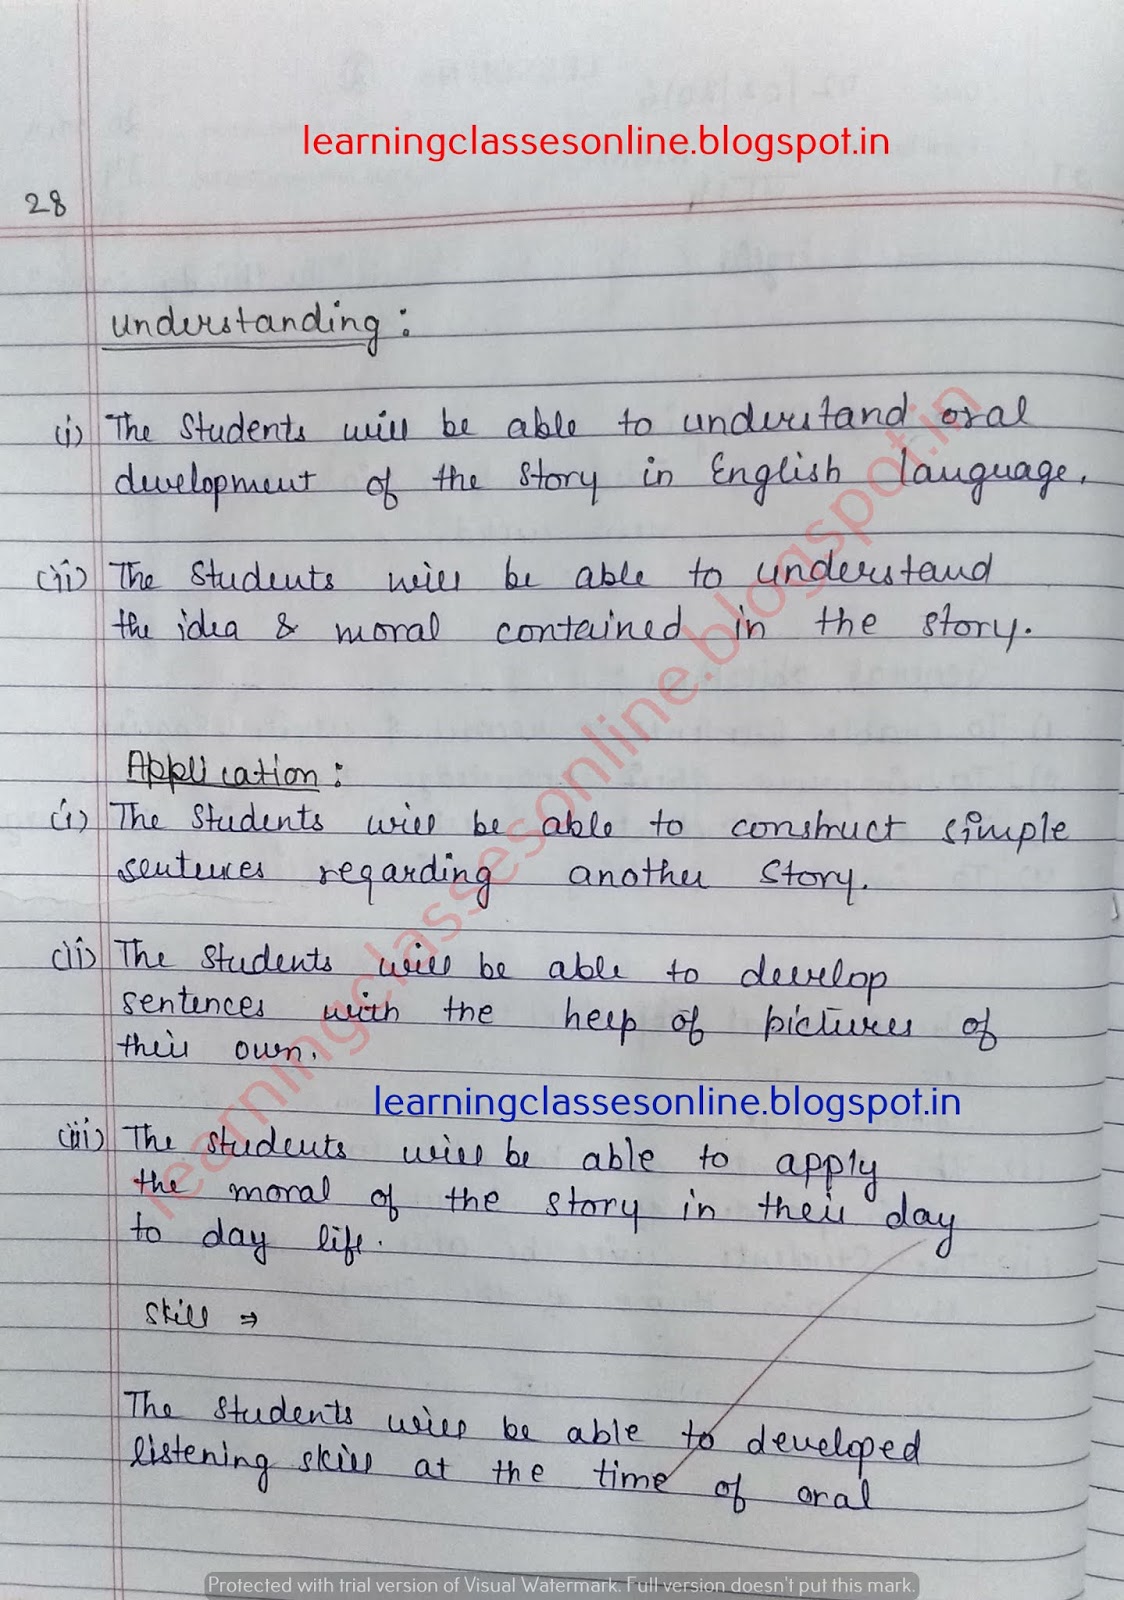 learningclassesonline.blogspot.in
28
understanding :
(i) The Students will be able to understand oral
development of the Story in English language.
(ii) The Students will be able to understand
the idea & moral contained in the story.
Application :
(i) The Students will be able to construct simple
sentences regarding another Story.
(ii) The Students will be able to develop
sentences with the help of pictures of
their own.
learningclassesonline.blogspot.in
(iii) The Students will be able to apply
the moral of the story in their day
to day life.
Skill ⇒
The Students will be able to developed
listening skill at the time of oral
learningclassesonline.blogspot.in
Protected with trial version of Visual Watermark. Full version doesn't put this mark.